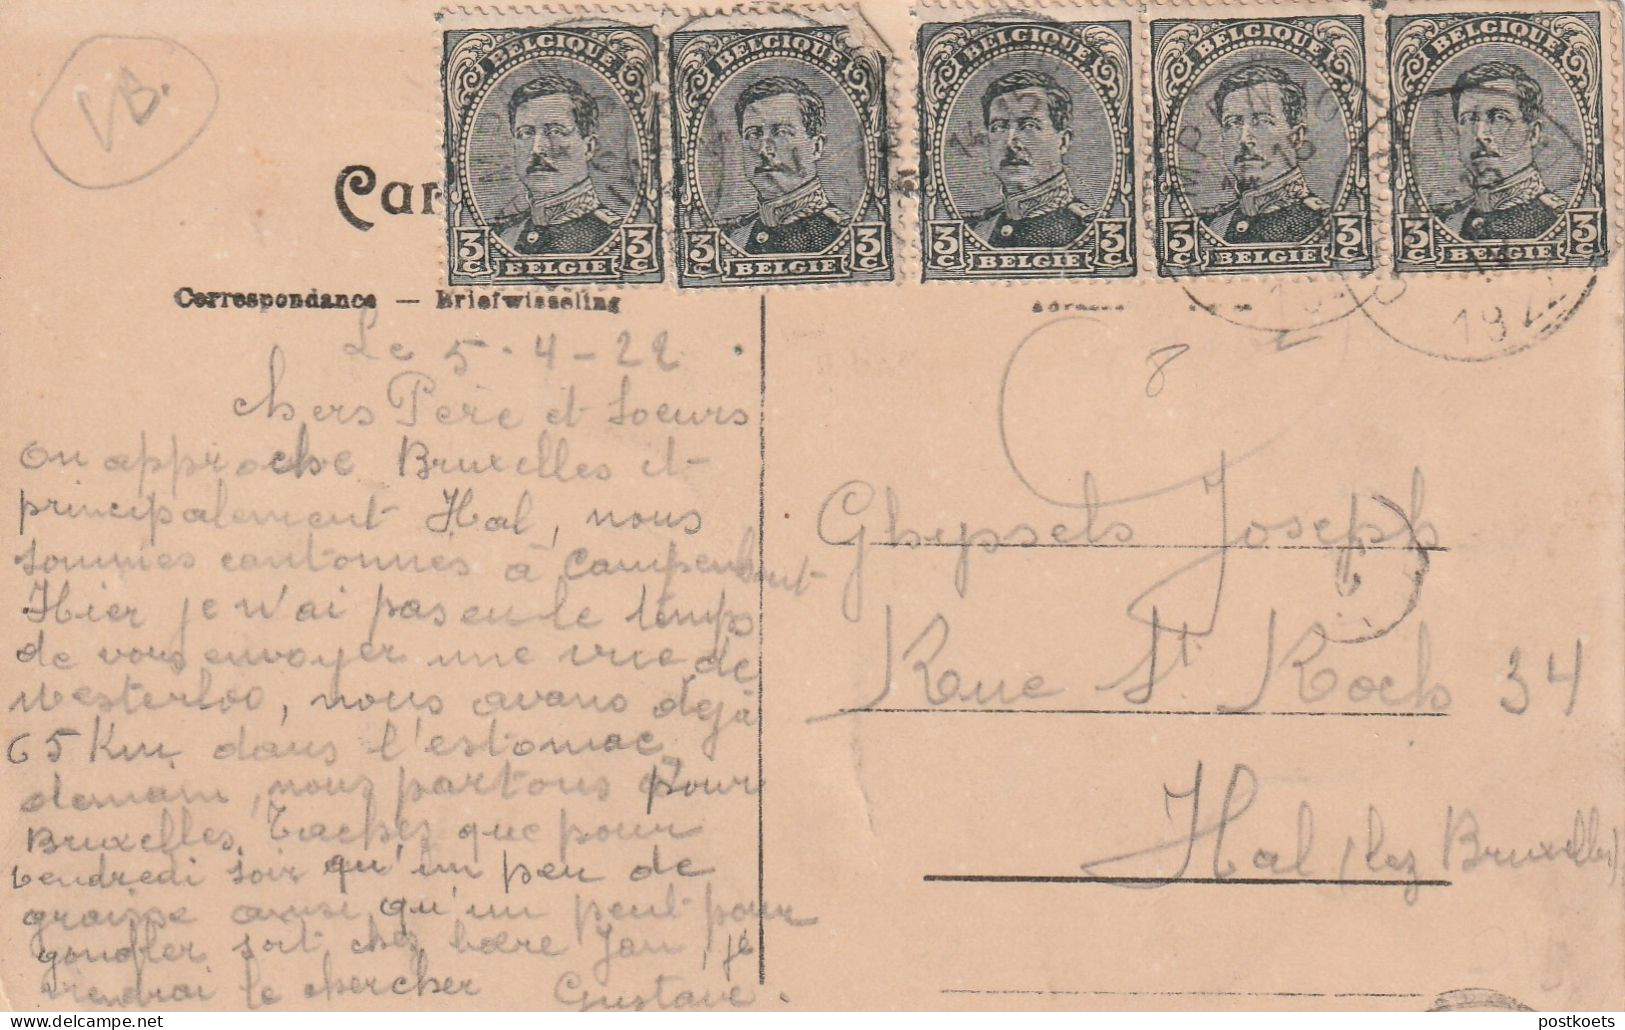 VB.
Car
BELGIQUE BELGIQUE BELGIQUE BELGIQUE BELGIQUE
3c 3c 3c 3c 3c 3c 3c 3c 3c 3c
BELGIE BELGIE BELGIE BELGIE BELGIE
Correspondance — Briefwisseling
Le 5-4-22
chers Père et soeurs
on approche Bruxelles et
principalement Hal, nous
sommes cantonnés à Campenhout
Hier je n'ai pas eu le temps
de vous envoyer une vue de
Westerloo, nous avons déjà
65 Km dans l'estomac
demain, nous partons pour
Bruxelles. Tachez que pour
vendredi soir qu'un peu de
graisse ainsi qu'un peut pour
gonofler soit chez boere Jan, je
viendrai le chercher Gustave.
8
Ghyssels Joseph
Rue St. Roch 34
Hal (lez Bruxelles)
postkoets